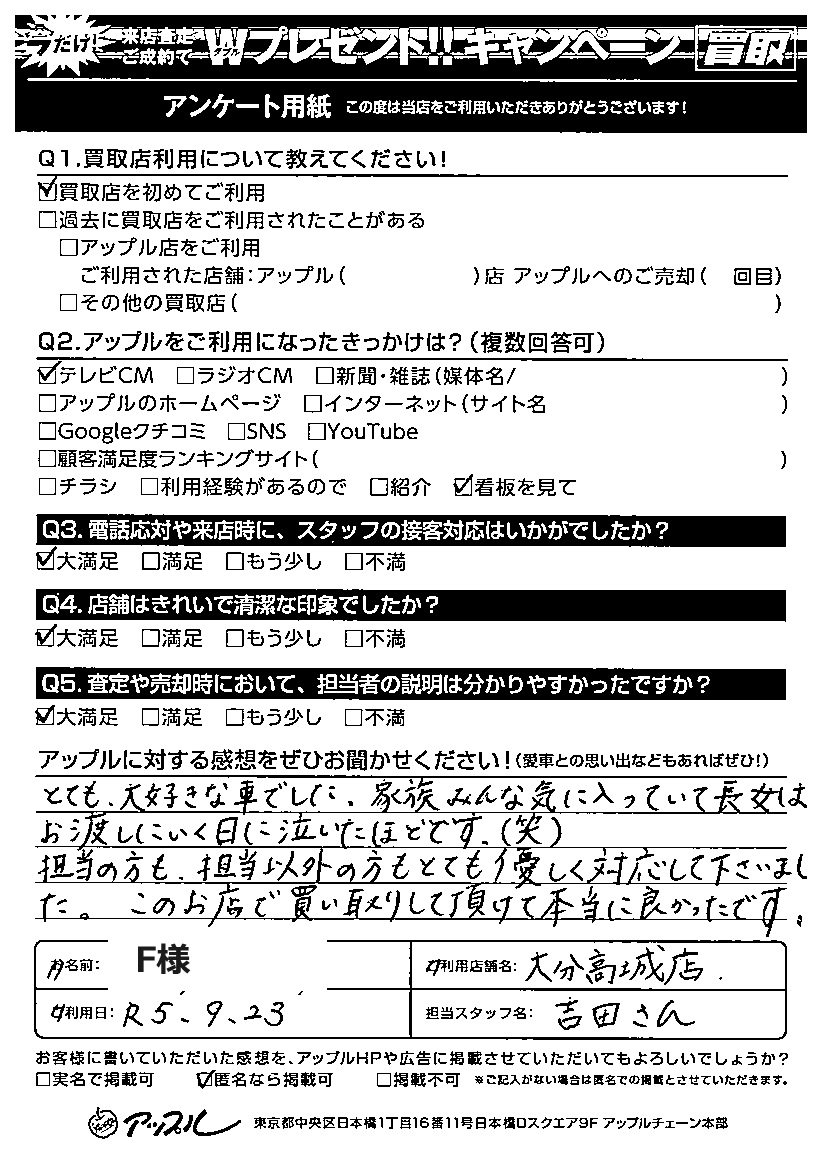 だけ! 来店査定 ご成約で Wダブルプレゼント!!キャンペーン 買取
アンケート用紙 この度は当店をご利用いただきありがとうございます!
Q1.買取店利用について教えてください!
☑買取店を初めてご利用
□過去に買取店をご利用されたことがある
□アップル店をご利用
ご利用された店舗:アップル( )店 アップルへのご売却( 回目)
□その他の買取店( )
Q2.アップルをご利用になったきっかけは?(複数回答可)
☑テレビCM □ラジオCM □新聞・雑誌(媒体名/ )
□アップルのホームページ □インターネット(サイト名 )
□Googleクチコミ □SNS □YouTube
□顧客満足度ランキングサイト( )
□チラシ □利用経験があるので □紹介 ☑看板を見て
Q3. 電話応対や来店時に、スタッフの接客対応はいかがでしたか?
☑大満足 □満足 □もう少し □不満
Q4. 店舗はきれいで清潔な印象でしたか?
☑大満足 □満足 □もう少し □不満
Q5. 査定や売却時において、担当者の説明は分かりやすかったですか?
☑大満足 □満足 □もう少し □不満
アップルに対する感想をぜひお聞かせください!(愛車との思い出などもあればぜひ!)
とても、大好きな車でした。家族みんな気に入っていて長女は
お渡しにいく日に泣いたほどです。(笑)
担当の方も、担当以外の方もとても優しく対応して下さいまし
た。 このお店で買い取りして頂けて本当に良かったです。
名前: F様 利用店舗名: 大分高城店.
利用日: R5、9、23 担当スタッフ名: 吉田さん
お客様に書いていただいた感想を、アップルHPや広告に掲載させていただいてもよろしいでしょうか?
□実名で掲載可 ☑匿名なら掲載可 □掲載不可 ※ご記入がない場合は匿名での掲載とさせていただきます。
アップル 東京都中央区日本橋1丁目16番11号日本橋ロスクエア9F アップルチェーン本部